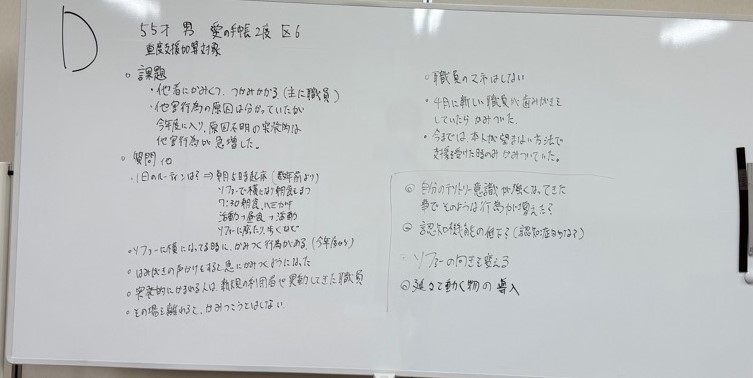 D
55才 男 愛の手帳2度 区6
重度支援加算対象
○ 課題
・他者にかみつく、つかみかかる(主に職員)
・他害行為の原因は分かっていたが
今年度に入り、原因不明の突発的な
他害行為が急増した。
○ 質問 他
・1日のルーティンは? ⇒ 朝5時起床 (数年前より)
ソファーで横になり朝食をまつ
7:30 朝食、ハミガキ
活動→昼食→活動
ソファーに座ったり、歩くなど
○ ソファーに横になってる時に、かみつく行為がある (今年度から)
○ はみがきの声かけをすると急にかみつくようになった
○ 突発的にかまれる人は、新規の利用者や異動してきた職員
○ その場を離れると、かみつこうとはしない
○ 職員のマネはしない
・4月に新しい職員が歯みがきを
していたらかみついた。
・今までは本人が望まない方法で
支援を受けた時のみかみついていた。
◎ 自分のテリトリー意識が強くなってきた
事でそのような行為が増えた?
◎ 認知機能の低下?(認知症
・ソファーの向きを変える
て動く物の導入